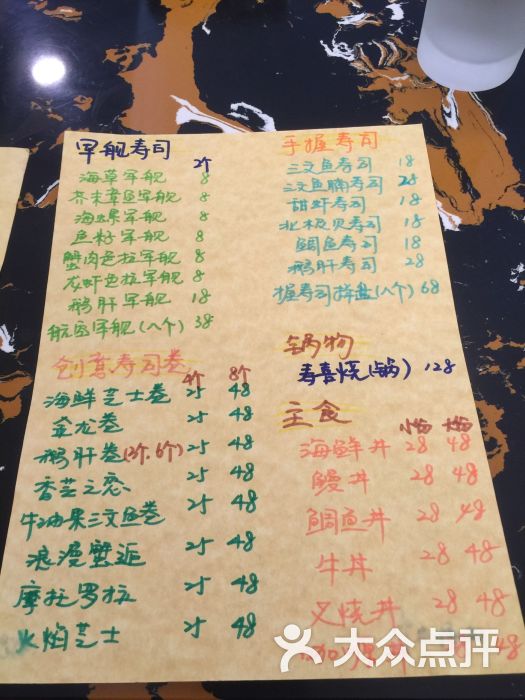 军舰寿司
2个
海草军舰 8
芥末章鱼军舰 8
海螺军舰 8
鱼籽军舰 8
蟹肉色拉军舰 8
龙虾色拉军舰 8
鹅肝军舰 18
航母军舰(八个) 38
创意寿司卷
4个 8个
海鲜芝士卷 25 48
金龙卷 25 48
鹅肝卷(3个.6个) 25 48
香芒之恋 25 48
牛油果三文鱼卷 25 48
浪漫蟹逅 25 48
摩托罗拉 25 48
火焰芝士 25 48
手握寿司
三文鱼寿司 18
三文鱼腩寿司 28
甜虾寿司 18
北极贝寿司 18
鲷鱼寿司 18
鹅肝寿司 28
握寿司拼盘(八个) 68
锅物
寿喜烧(锅) 128
主食
海鲜丼 28 48
鳗丼 28 48
鲷鱼丼 28 48
牛丼 28 48
叉烧丼 28 48
48
大众点评